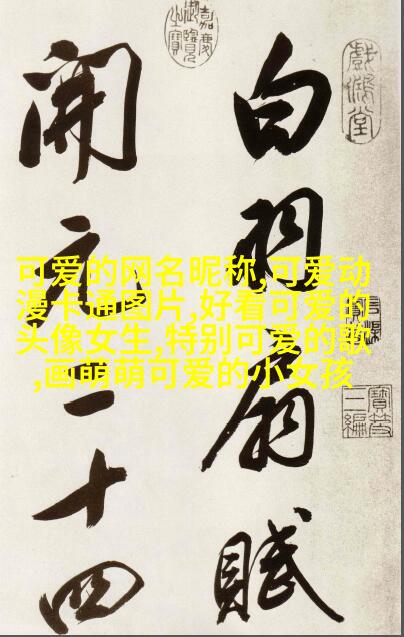 嘉慶御覽之寶
戲鴻堂
白羽扇賦
開元二十四
可爱的网名昵称,可爱动
漫卡通图片,好看可爱的
头像女生,特别可爱的歌
,画萌萌可爱的小女孩
寶笈三編